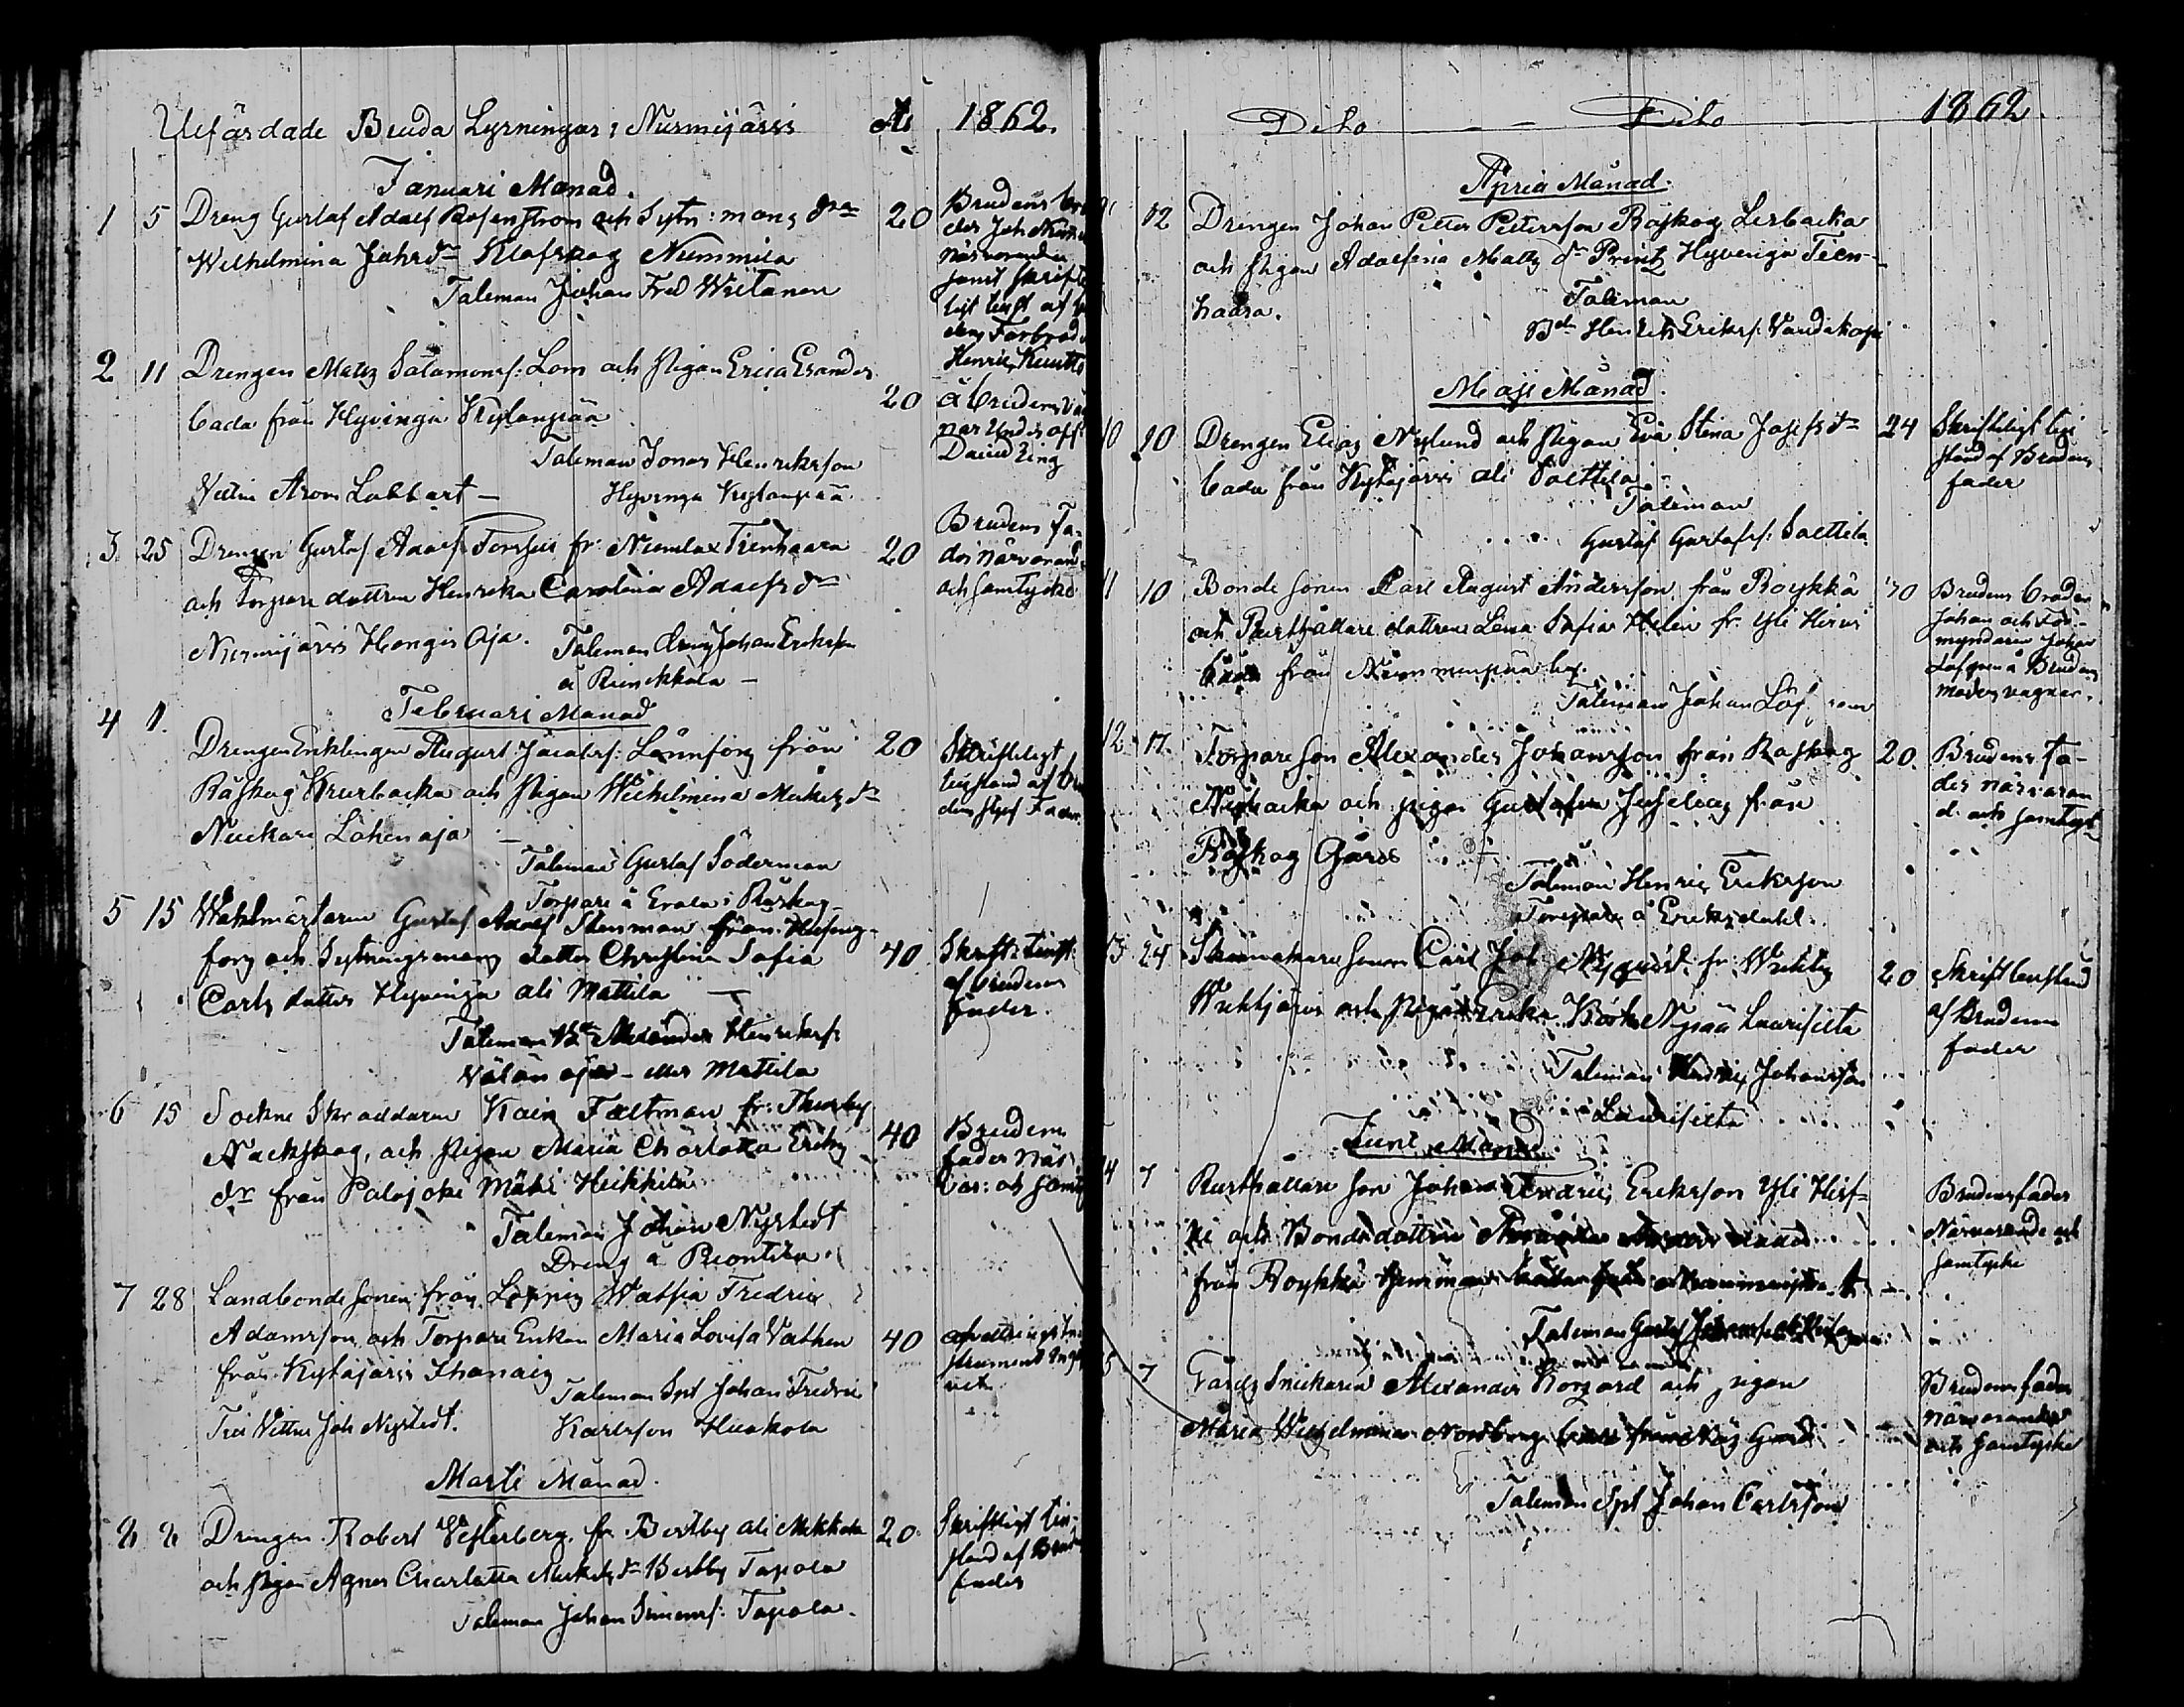 Utfärdade Bruda Lysningar i Nurmijärvi År 1862.
Januari Månad.
1 5 Dreng Gustaf Adolf Rosenstrom och Sytn: mans dr
Wilhelmina Jahnsdr Klafskog Nummila 20
Taleman Johan Fred Wirtanen
Brudens
der Joh
närvarande
samt skrift
ligt af
dens Farbrod
Henric
2 11 Drengen Matts Salamonss: Lom och Pigan Erica Esander
båda från Hyvinge Kytanpää 20
Taleman Jonas Henriksson
Vittne Aron Labbart — Hyvinge Kytanpää.
å brudens väg
nar Under off:
David Ling
3 25 Drengen Gustaf Adolf Forssius fr. Numlax Tienhaara 20
och Torpare dottren Henrika Carolina Adolfsdr
Nurmijärvi Hongis Oja. Taleman dreng Johan Eriksson
å Rinckkala —
Brudens Fa-
der närvarande
och samtyckte
Februari Månad
4 1. Drengen Enklingen August Jacobss: Lönnfors från 20
Råskog Krusbacka och Pigan Wilhelmina Michelsdr
Nuckari Lahenoja —
Taleman Gustaf Söderman
Torpare å Erola i Råskog —
Skrifteligt
tilstånd af bru
dens styf Fader
5 15 Waktmästaren Gustaf Adolf Stenman från Helsing-
fors och Sytningsmans dotter Christina Sofia 40
Carls dotter Hyvinge ali Mattila —
Taleman Bd Alexander Henrikss:
Välän oja — eller Mattila
Skrift: tilst:
af brudens
fader.
6 15 Sockne Skraddaren Kain Faltman fr. Thusby
Nackskog, och Pigan Maria Charlotta Eriks 40
dr från Palojoki Mäki Heikkilä
Taleman Johan Nystedt
Dreng å Reontila
Brudens
fader när
var: och samty
7 28 Landbonde sonen från Loppis Watsia Fredric
Adamsson och Torpare Enkan Maria Lovisa Vathen 40
från Kytäjärvi Ihanais
Taleman Spl Johan Fredric
Tree Vittne Joh Nystedt. Karlsson Hiiskola
afvittrings In
strument Ingif
vet
Marti Månad.
8 8 Drengen Robert Vesterberg fr. Bertby ali Mikkola 20
och Pigan Agnes Charlotta Michelsdr Bertby Tapola
Taleman Johan Simonss: Tapola.
Skriftligt til-
stånd af Brud
fader
Dito — Dito — 1862.
April Månad.
12 Drengen Johan Petter Pettersson Råskog Lerbacka
och Pigan Adolfina Matts dr Printz Hyvinge Tien-
haara.
Taleman
Bd Henrik Erikss: Vaudikopi
Maji Månad.
10 10 Drengen Elias Nylund och Pigan Eva Stina Josefsdr 24
båda från Kytäjärvi ali Solttila
Taleman
Gustaf Gustafss: Solttila.
Skriftligt til
stånd af Brudens
fader
11 10 Bonde sonen Carl August Andersson från Röykkä 30
och Rusthållare dottren Lena Sofia Helin fr. Yli Hirvi
båda från Nummenpää by.
Taleman Johan Löfgren
Brudens broder
Johan och För-
myndaren Johan
Löfgren å Brudens
moders vagnar.
12 17. Torpare son Alexander Johansson från Råskog 20.
Nybacka och pigan Gustafva Jusselius från
Råskog Gård
Taleman Henric Eriksson
Torpare å Eriksdahl.
Brudens Fa-
der närvaran
d. och samtyckt
13 24 Skomakare sonen Carl Joh: Nyqvist fr. Wichtis 20
Wichtjärvi och Pigan Erika Köök Nypää Laurisilta
Taleman Henric Johansson
Laurisilta
Skrift tilstånd
af Brudens
fader
Juni Månad
14 7 Rusthållare son Johan Fredric Eriksson Yli Hirf-
vi och Bonde dottren
från Röykkä
Taleman Gustaf
Brudens fader
Närvarande och
samtycke
15 7 Färds Snickaren Alexander Borgard och pigan
Maria Wilhelmina Nordberg båda från Näs Gård
Taleman Spl Johan Carlsson
Brudens fader
närvarande
och samtycke